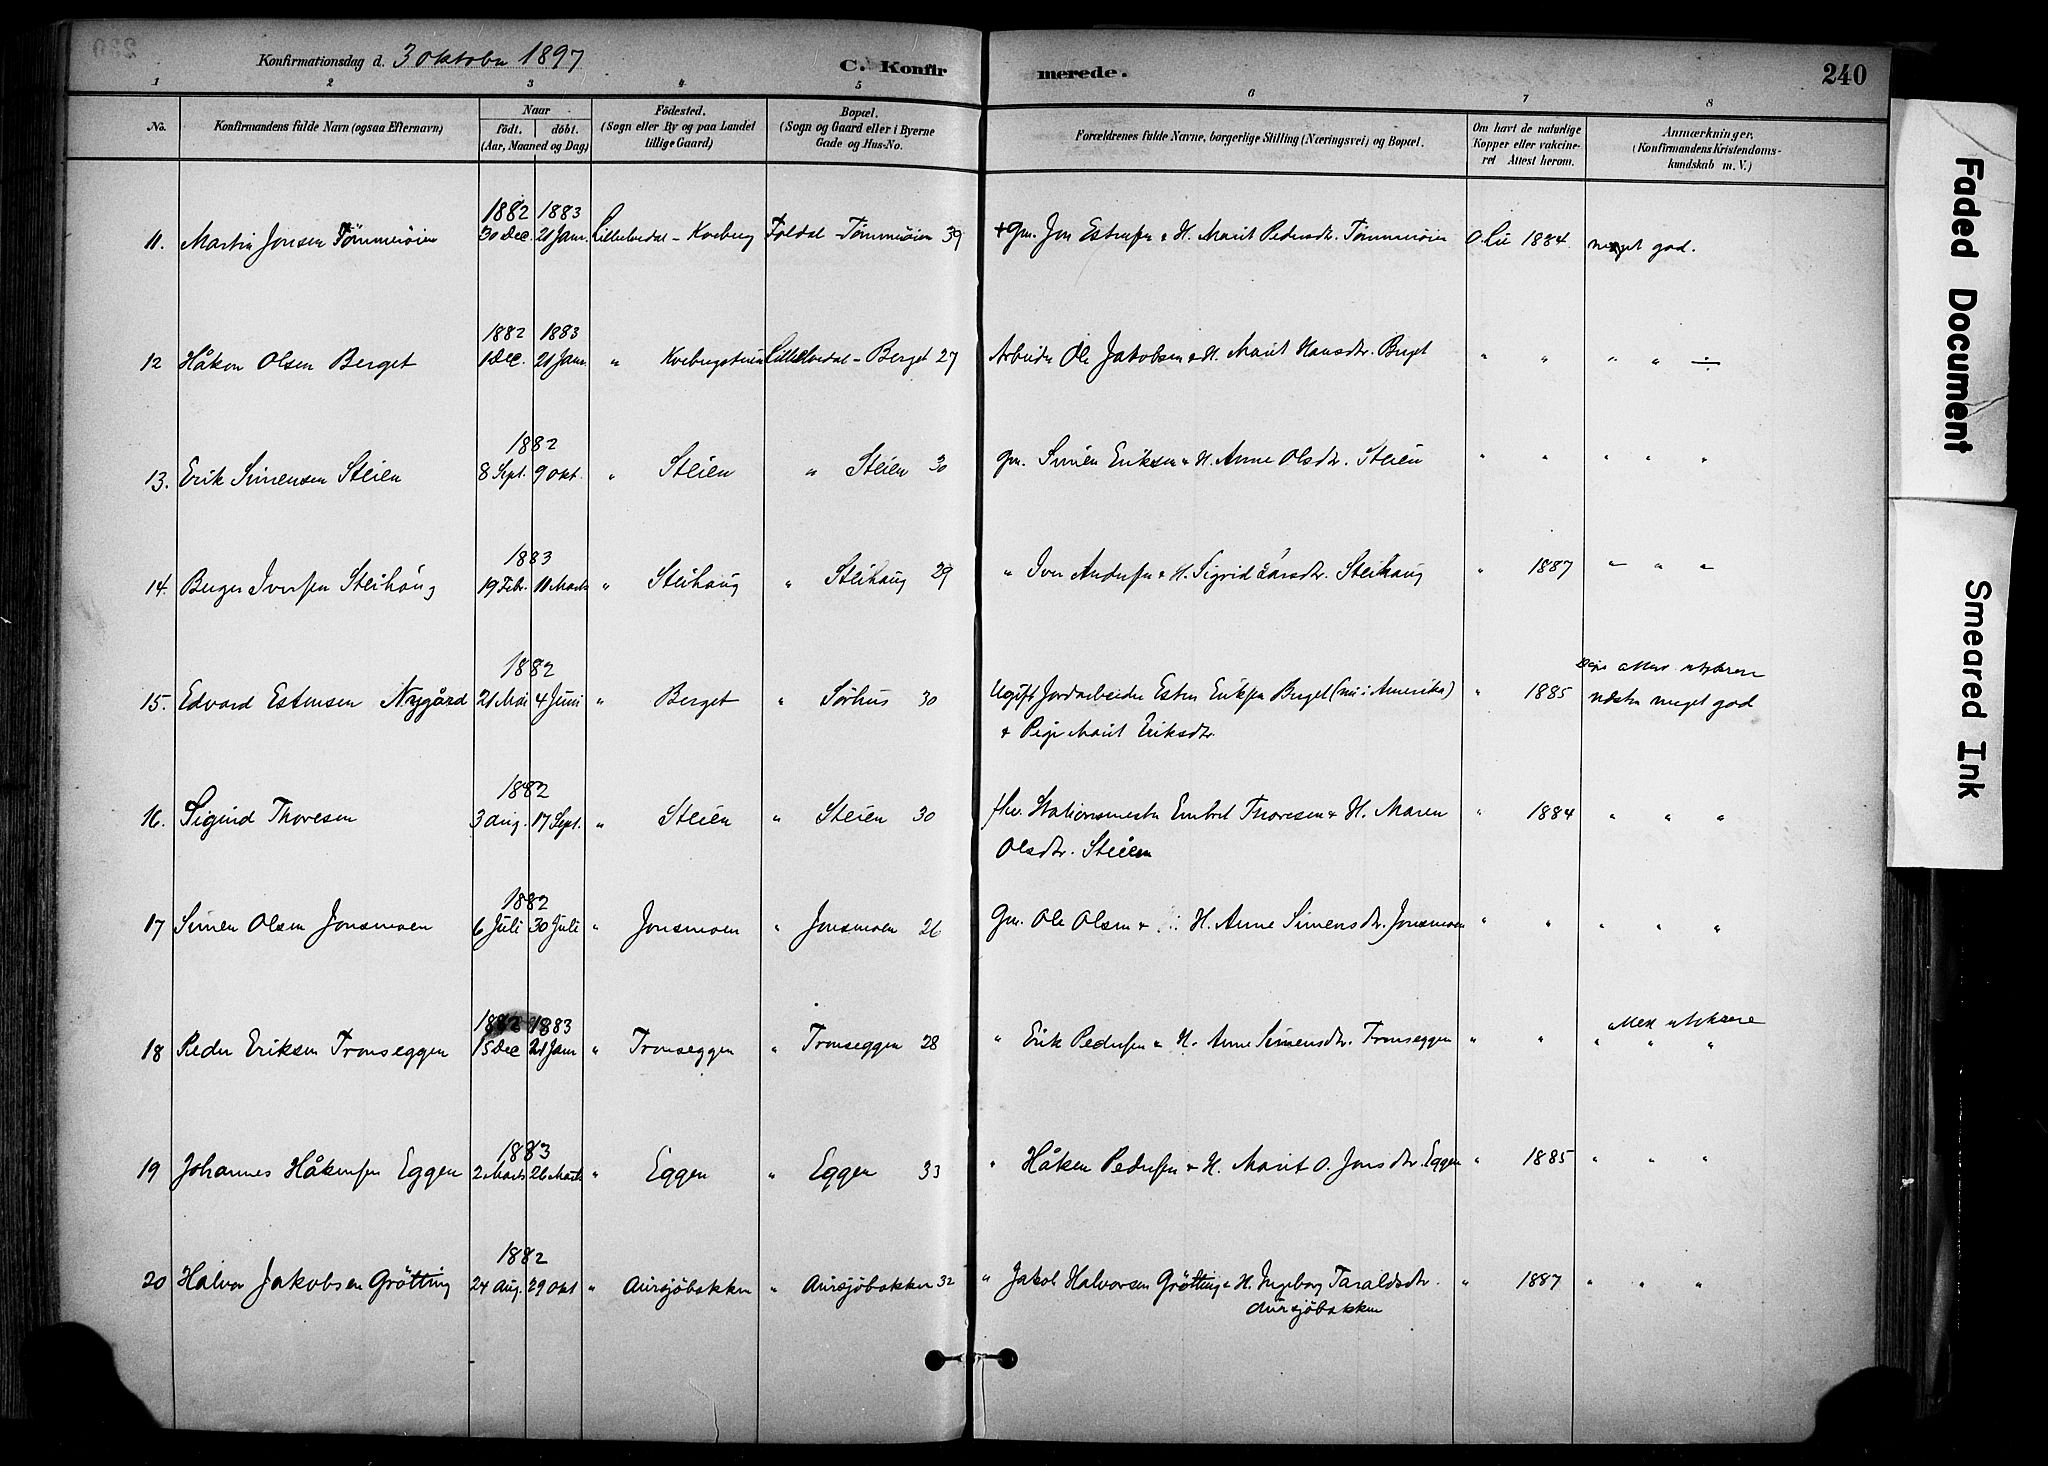 Konfirmationsdag d. 3 Oktober 1897
C. Konfirmerede.
240
1 2 3 4 5 6 7 8
No.
Konfirmandens fulde Navn (ogsaa Efternavn)
Naar
födt. döbt.
(Aar, Maaned og Dag)
Födested.
(Sogn eller By og paa Landet
tillige Gaard)
Bopæl.
(Sogn og Gaard eller i Byerne
Gade og Hus-No.
Forældrenes fulde Navne, borgerlige Stilling (Næringsvei) og Bopæl.
Om havt de naturlige
Kopper eller vakcine-
ret Attest herom.
Anmærkninger.
(Konfirmandens Kristendoms-
kundskab m. V.)
1882 1883
11. Martin Jonsen Tömmeröien 30 Dec. 21 Janr. Lilleelvedal - Kveberg Foldal - Tömmeröien 39 + Gm. Jon Estensen & H. Marit Pedersdtr. Tömmeröien 1884 meget god.
1882 1883
12 Håkon Olsen Berget 1 Dec. 21 Janr. " Lilleelvedal - Berget 27 Arbeider Ole Jakobsen & H. Marit Hansdtr. Berget " " " " ÷
1882
13. Erik Simensen Steien 8 Sept. 9 Okt. " Steien " Steien 30 Gm. Simen Eriksen & H. Anne Olsdtr. Steien " " " " "
1883
14. Birger Iversen Steihaug 19 Febr. 11 Marts " Steihaug " Steihaug 29 " Iver Andersen & H. Sigrid Larsdtr. Steihaug " 1887 " " "
1882
15. Edvard Estensen Nygård 21 Mai 4 Juni " Berget " Sörhus 30 Ugift Jordarbeider Esten Eriksen Berget (nu i Amerika) " 1885 næsten meget god
& Pige Marit Eriksdtr.
1882
16. Sigurd Thoresen 3 Aug. 17 Sept. " Steien " Steien 30 fhv. Stationsmester Embret Thoresen & H. Maren " 1884 " " "
Olsdtr. Steien
1882
17 Simen Olsen Jonsmoen 6 Juli 30 Juli " Jonsmoen " Jonsmoen 26 Gm. Ole Olsen & H. Anne Simensdtr. Jonsmoen " " " " "
1882 1883
18 Peder Eriksen Tronseggen 15 Dec 21 Janr " Tronseggen " Tronseggen 28 " Erik Pedersen & H. Anne Simensdtr. Tronseggen " " " " "
1883
19 Johannes Håkensen Eggen 2 Marts 26 Marts " Eggen " Eggen 33 " Håken Pedersen & H. Marit O. Jonsdtr. Eggen " 1885 " " "
1882
20 Halvor Jakobsen Grötting 24 Aug. 29 Okt " Aursjöbakken " Aursjöbakken 32 " Jakob Halvorsen Grötting & H. Ingeborg Taraldsdtr. " 1887 " " "
Aursjöbakken
Faded Document
Smeared Ink